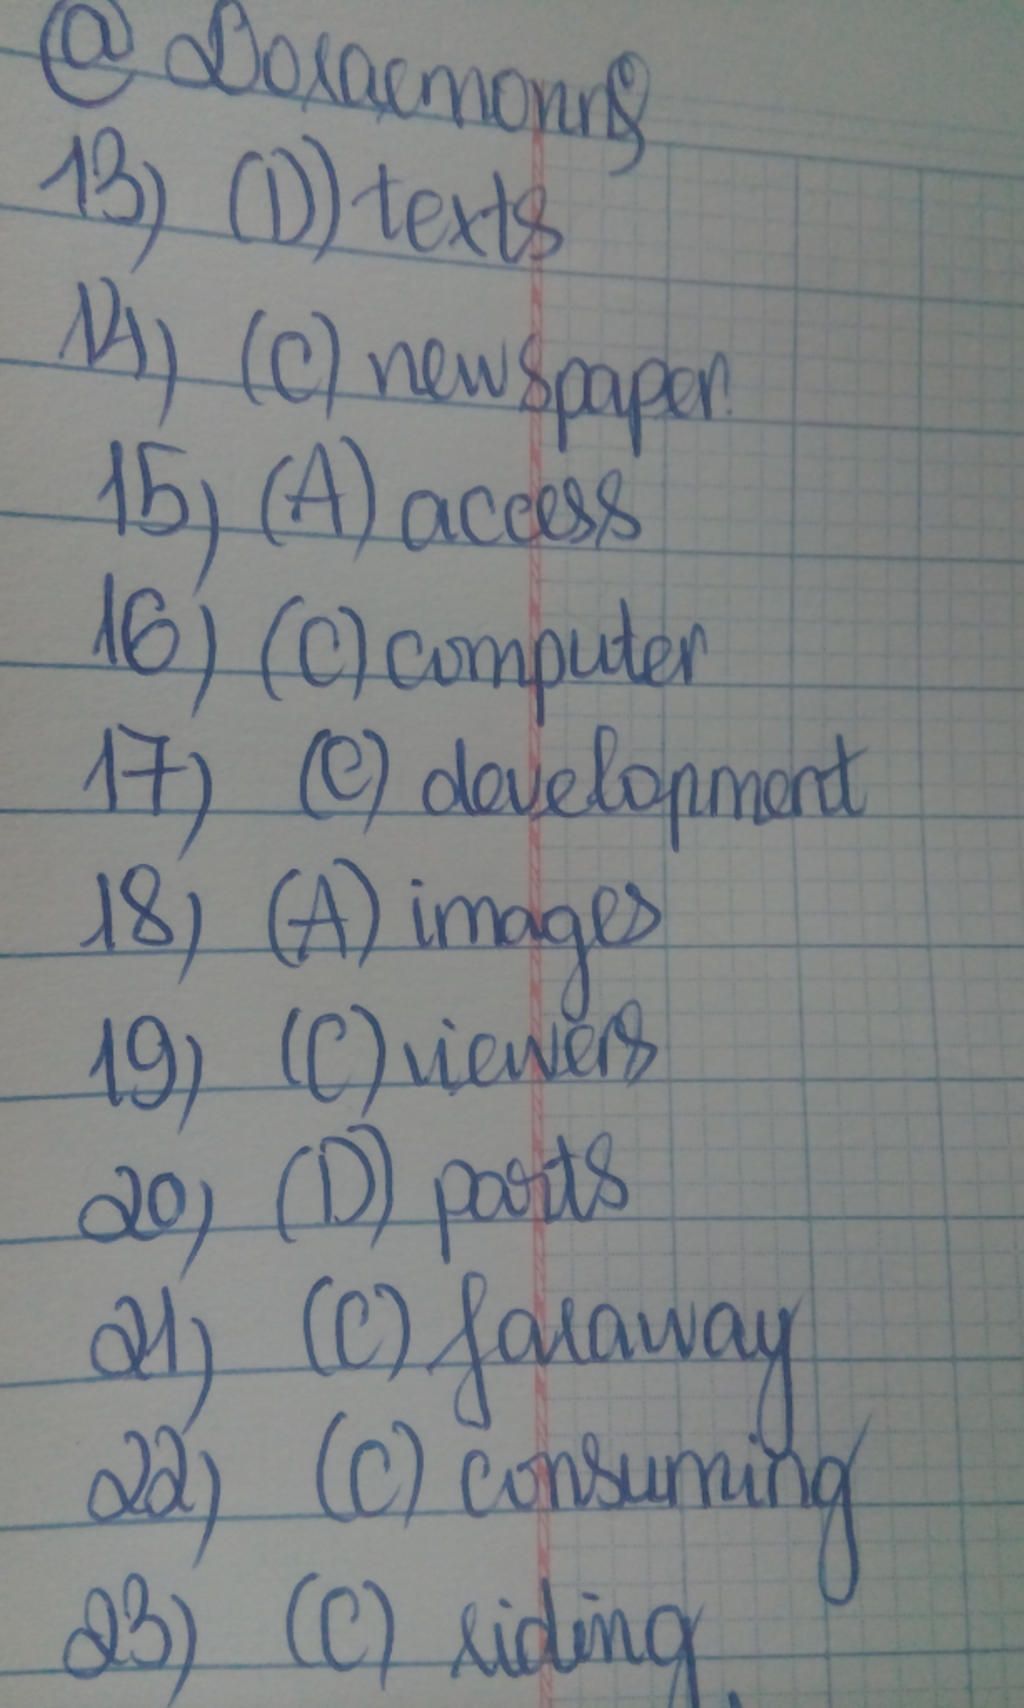 @ Doraemonng
13) (D) texts
14) (C) newspaper
15) (A) access
16) (C) computer
17) (C) development
18) (A) images
19) (C) viewers
20) (D) parts
21) (C) faraway
22) (C) consuming
23) (C) riding